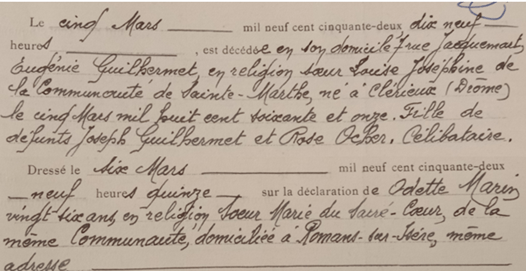 Le cinq Mars mil neuf cent cinquante-deux dix neuf
heures , est décédée en son domicile 7 rue Jacquemart,
Eugénie Guilhermet, en religion sœur Louise Joséphine de
la Communauté de Sainte-Marthe, né à Clérieux (Drôme)
le cinq Mars mil huit cent soixante et onze. Fille de
défunts Joseph Guilhermet et Rose Ocher. Célibataire.
Dressé le six Mars mil neuf cent cinquante-deux
neuf heures quinze sur la déclaration de Odette Marin,
vingt six ans, en religion Sœur Marie du Sacré-Cœur, de la
même Communauté, domiciliée à Romans-sur-Isère, même
adresse